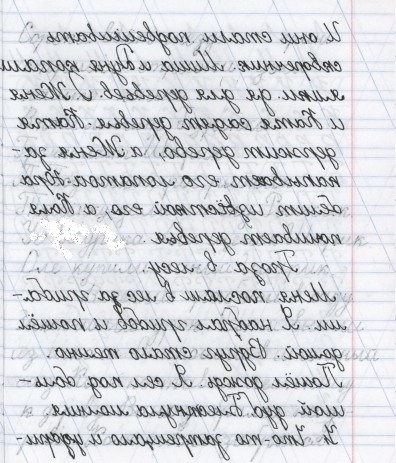 И они стали подвешивать
скворечник. Миша и Дуня копали
ямки. дя для деревьев. Женя
и Катя садят деревья. Катя
держит дерево, а Женя за-
капывает его лопатой. Юра
облит извёсткой его, а Коля
поливает деревья.
Гроза в лесу.
Меня послали в лес за гриба-
ми. Я набрал грибов и пошёл
домой. Вдруг стало темно.
Пошёл дождь. Я сел под боль-
шой дуб. Блестнула молния.
Что-то затрещало и удари-